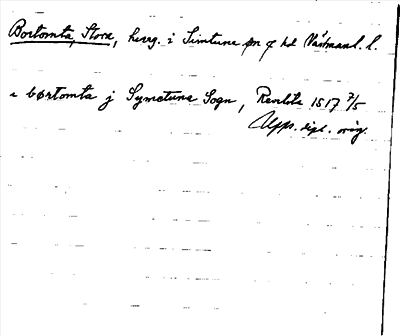 Bortomta, Stora, herrg. i Simtuna sn o hd Västmanl. l.
a børtomta j Symetuna Sogn, Revelsta 1517 7/5
Upps. dipl. orig.